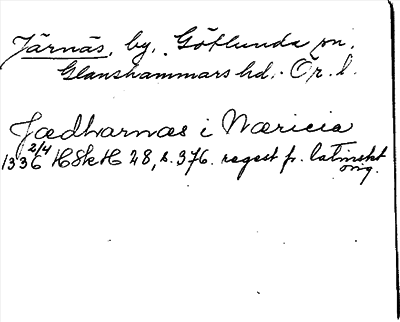 Järnäs, by, Götlunda sn,
Glanshammars hd. Ör. l.
Jædharnæs i Næricia
1336 2/4 HSkH 28, s. 376. regest fr. latinskt
orig.